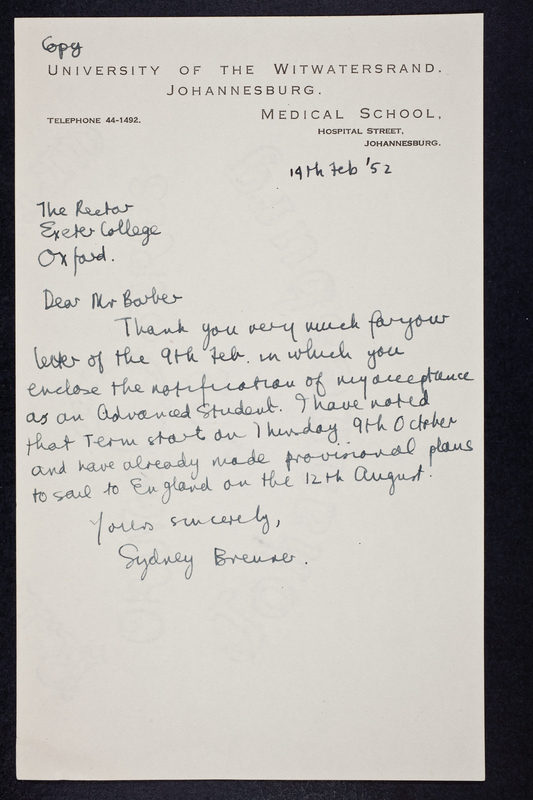 Copy
UNIVERSITY OF THE WITWATERSRAND.
JOHANNESBURG.
MEDICAL SCHOOL,
TELEPHONE 44-1492.
HOSPITAL STREET,
JOHANNESBURG.
19th Feb '52
The Rector
Exeter College
Oxford.
Dear Mr Barber
Thank you very much for your
letter of the 9th Feb. in which you
enclose the notification of my acceptance
as an Advanced Student. I have noted
that Term start on Thursday 9th October
and have already made provisional plans
to sail to England on the 12th August.
Yours sincerely,
Sydney Brenner.